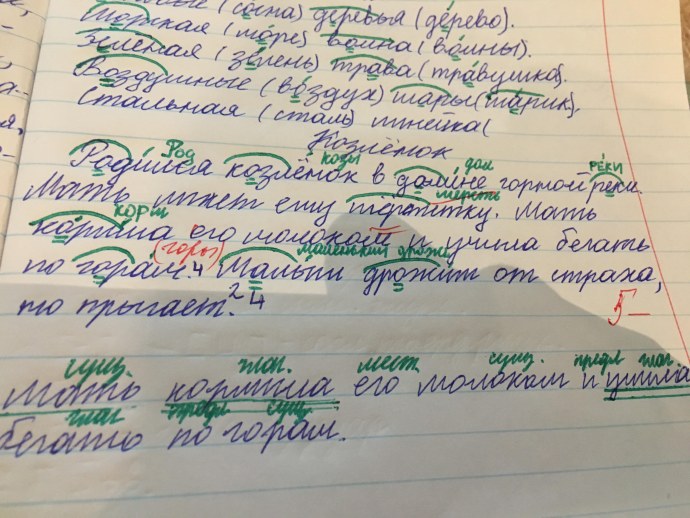 (сосна) деревья (дерево).
Морская (море) волна (волны).
Зелёная (зелень) трава (травушка).
Воздушные (воздух) шары (шарик).
Стальная (сталь) линейка (
Козлёнок
Род козы дол реки
Родился козлёнок в долине горной реки.
шерсть
Мать лижет ему шёрстку. Мать
корм
кормила его молоком и учила бегать
(горы) маленький дрожь
по горам.4 Малыш дрожит от страха,
то прыгает.2 4
5-
сущ. глаг. мест. сущ. предл глаг.
Мать кормила его молоком и учила
глаг предл сущ.
бегать по горам.